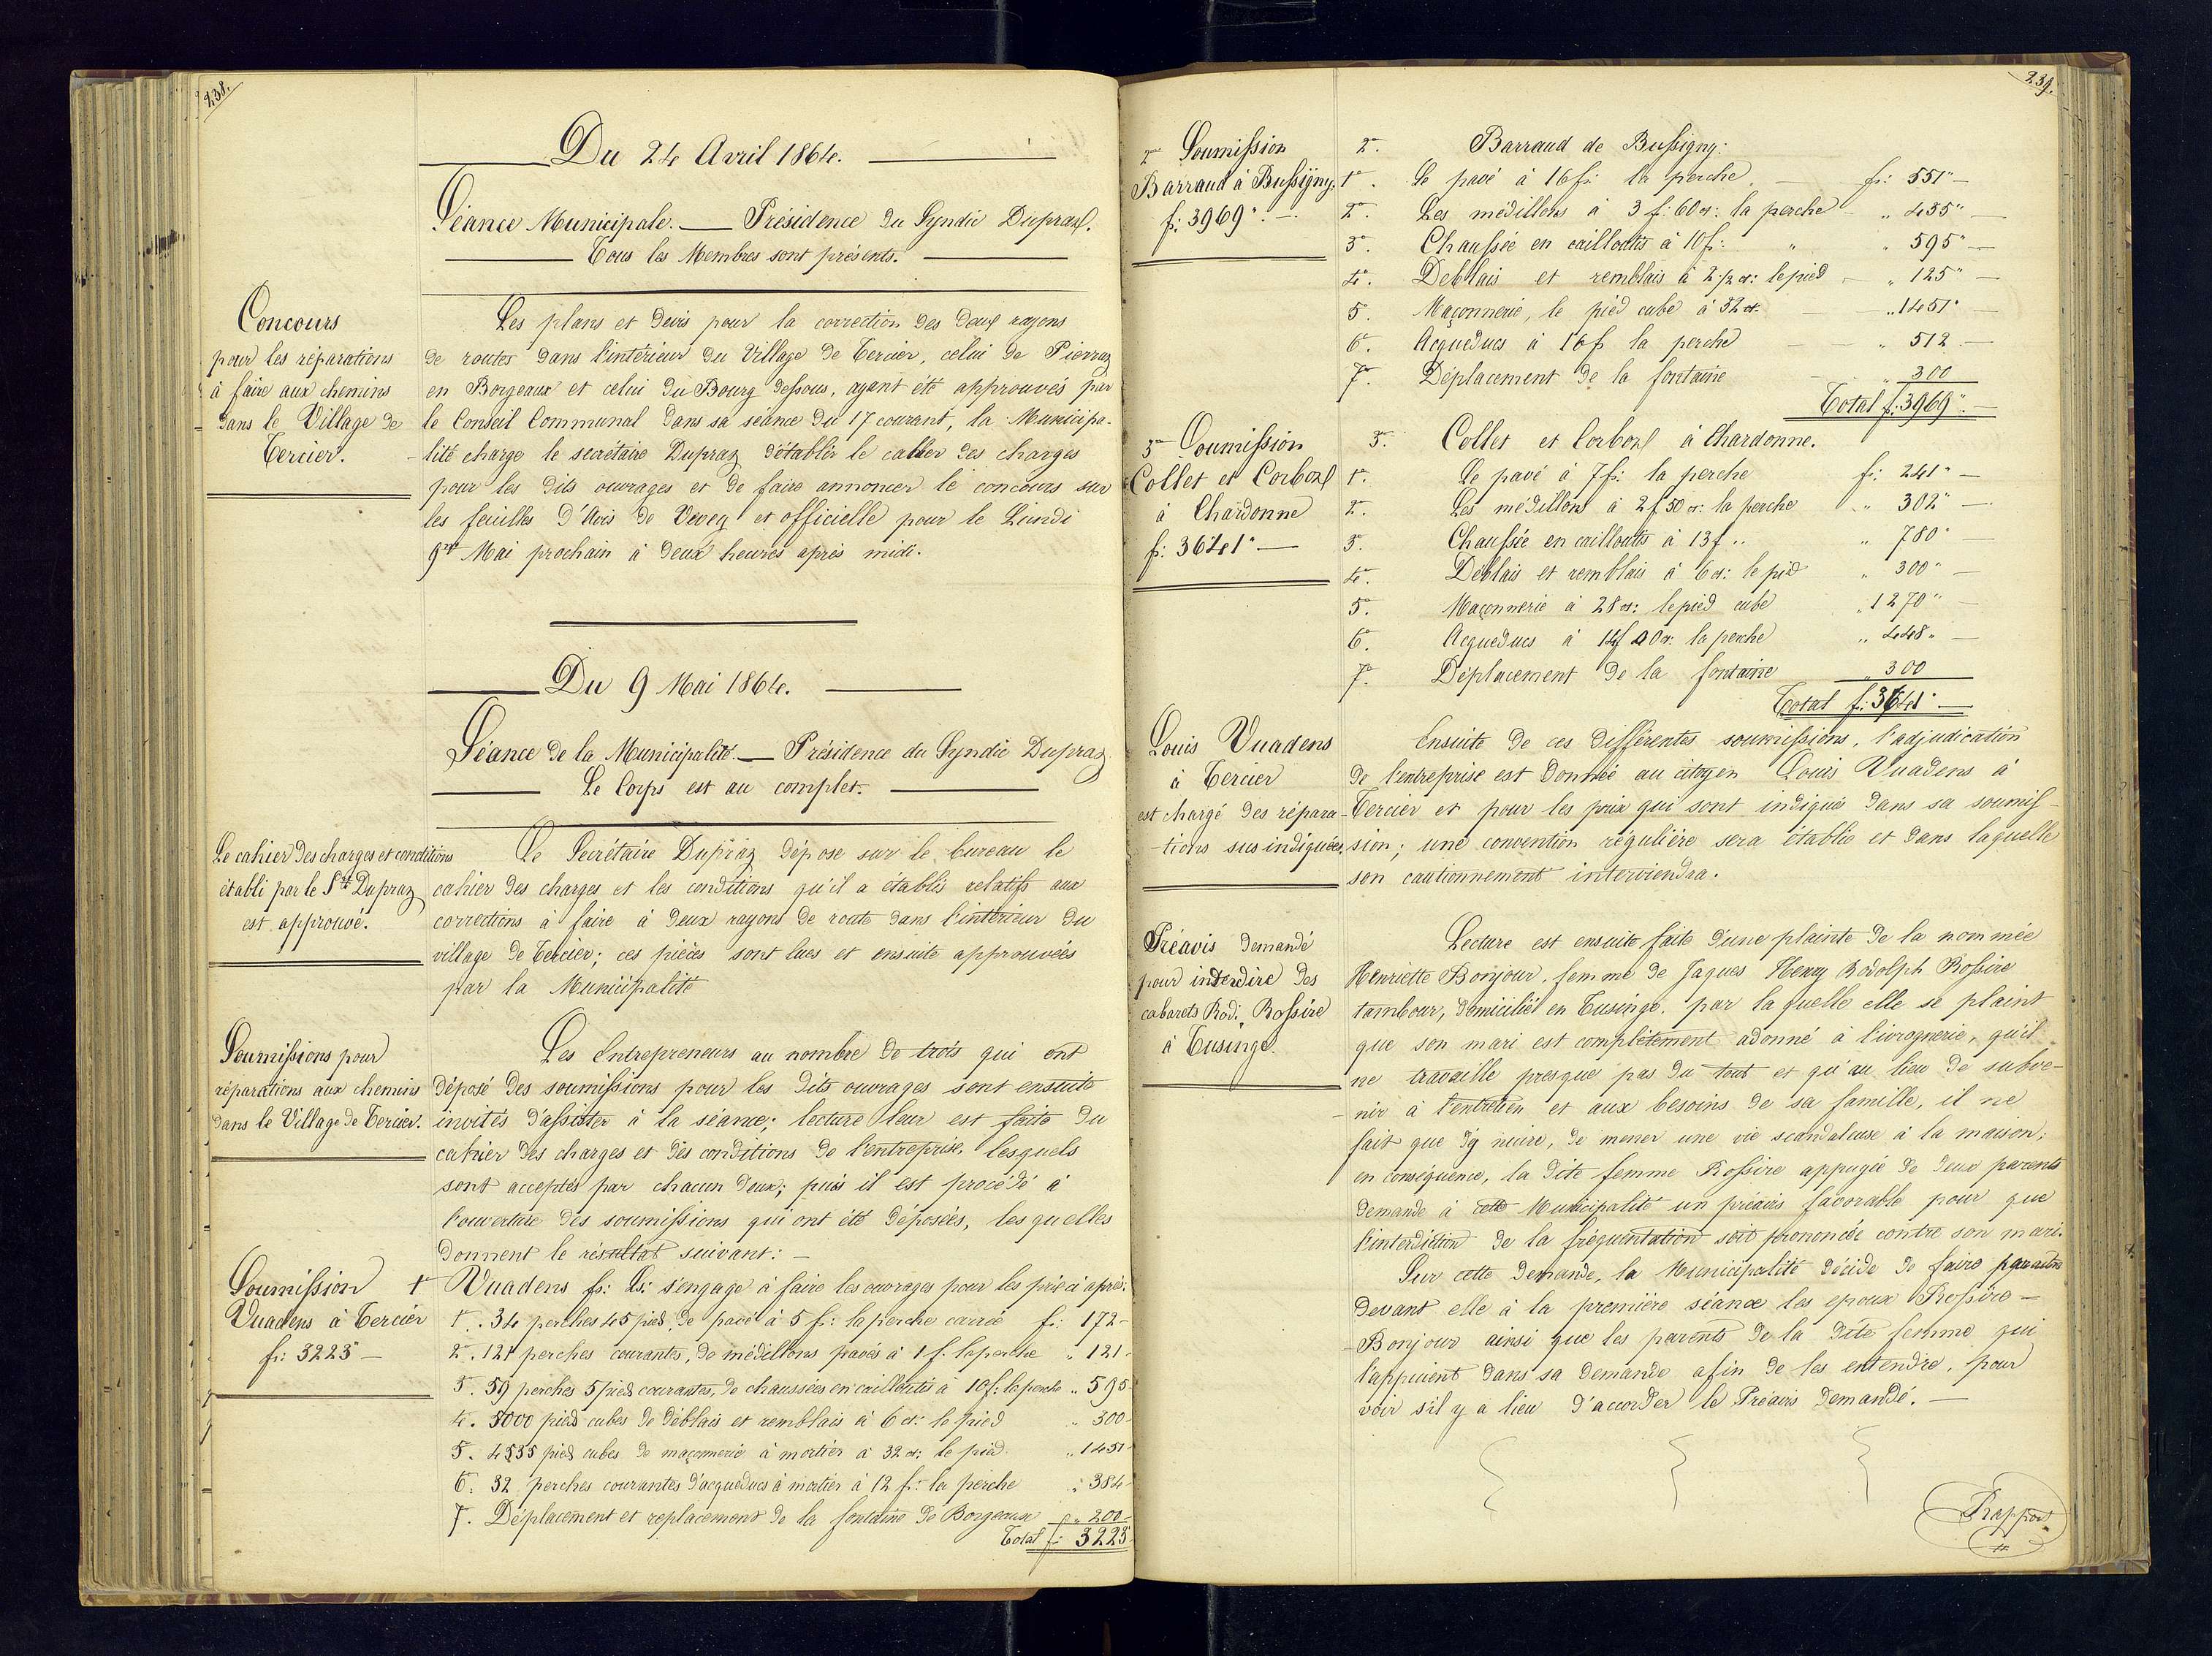 238.
Du 24 Avril 1864.
Séance Municipale. — Présidence du Syndic Dupraz.
Tous les Membres sont présents.
Concours
pour les réparations
à faire aux chemins
dans le Village de
Tercier.
Les plans et devis pour la correction des deux rayons
de routes dans l'intérieur du Village de Tercier, celui de Pierraz
en Borgeaux et celui du Bourg dessous, ayant été approuvés par
le Conseil Communal dans sa séance du 17 courant, la Municipa-
-lité charge le secrétaire Dupraz d'établir le cahier des charges
pour les dits ouvrages et de faire annoncer le concours sur
les feuilles d'Avis de Vevey et officielle pour le Lundi
9me Mai prochain à deux heures après midi.
Du 9 Mai 1864.
Séance de la Municipalité. — Présidence du Syndic Dupraz
Le Corps est au complet.
Le cahier des charges et conditions
établi par le Sre Dupraz
est approuvé.
Le Secrétaire Dupraz dépose sur le bureau le
cahier des charges et les conditions qu'il a établis relatifs aux
corrections à faire à deux rayons de route dans l'intérieur du
village de Tercier; ces pièces sont lues et ensuite approuvées
par la Municipalité
Soumissions pour
réparations aux chemins
dans le Village de Tercier.
Les Entrepreneurs au nombre de trois qui ont
déposé des soumissions pour les dits ouvrages sont ensuite
invités d'assister à la séance; lecture leur est faite du
cahier des charges et des conditions de l'entreprise, lesquels
sont acceptés par chacun deux; puis il est procédé à
l'ouverture des soumissions qui ont été déposées, lesquelles
donnent le résultat suivant: —
Soumission
Vuadens à Tercier
fr: 3223 —
1° Vuadens fs: Ls: s'engage à faire les ouvrages pour les prix ci après:
1°. 34 perches 45 pied, de pavé à 5 fr: la perche carrée fr: 172 -
2°. 121 perches courantes, de médillons pavés à 1 f. la perche " 121 -
3. 59 perches 5 pied courantes, de chaussées en cailloutis à 10 f: la perche " 595 -
4. 5000 pied cubes de déblais et remblais à 6 ct: le pied " 300 -
5. 4535 pied cubes de maçonnerie à mortier à 32 ct: le pied " 1451 -
6. 32 perches courantes d'acqueducs à mortier à 12 fr: la perche " 384 -
7. Déplacement et replacement de la fontaine de Borgeaux " 200 -
Total fr: 3223 -
239.
2me Soumission
Barraud à Bussigny.
fr: 3969". —
2°. Barraud de Bussigny:
1°. Le pavé à 16 fr: la perche. — fr: 551" —
2°. Les médillons à 3 f: 60 ct: la perche — " 435" —
3°. Chaussée en cailloutis à 10 fr: " " 595" —
4°. Deblais et remblais à 2 1/2 ct: le pied — " 125" —
5. Maçonnerie, le pied cube à 32 ct. — " 1451" —
6°. Acqueducs à 16 fr la perche — " 512 —
7°. Déplacement de la fontaine " 300
Total f: 3969". —
3me Soumission
Collet et Corboz
à Chardonne
fr: 3641" —
3°. Collet et Corboz à Chardonne.
1°. Le pavé à 7 fr: la perche fr: 241" —
2°. Les médillons à 2 f 50 ct: la perche " 302" —
3°. Chaussée en cailloutis à 13 f " 780" —
4°. Déblais et remblais à 6 ct: le pied " 300" —
5°. Maçonnerie à 28 ct: le pied cube " 1270" —
6°. Acqueducs à 14 f 00 ct: la perche " 448" —
7°. Déplacement de la fontaine " 300
Total f: 3641" —
Louis Vuadens
à Tercier
est chargé des répara-
-tions sus indiquées.
Ensuite de ces différentes soumissions, l'adjudication
de l'entreprise est donnée au citoyen Louis Vuadens à
Tercier et pour les prix qui sont indiqués dans sa soumis-
sion; une convention régulière sera établie et dans laquelle
son cautionnement interviendra.
Préavis demandé
pour interdire des
cabarets Rod: Rossire
à Tusinge.
Lecture est ensuite faite d'une plainte de la nommée
Henriette Bonjour, femme de Jaques Henry Rodolph Rossire
tambour, domicilié en Tusinge, par laquelle elle se plaint
que son mari est complètement adonné à l'ivrognerie, qu'il
ne travaille presque pas du tout et qu'au lieu de subve-
-nir à l'entretien et aux besoins de sa famille, il ne
fait que d'y nuire, de mener une vie scandaleuse à la maison;
en conséquence, la dite femme Rossire appuyée de deux parents
demande à cette Municipalité un préavis favorable pour que
l'interdiction de la fréquentation soit prononcée contre son mari.
Sur cette demande, la Municipalité décide de faire paraitre
devant elle à la première séance les epoux Rossire —
-Bonjour ainsi que les parents de la dite femme qui
l'appuient dans sa demande afin de les entendre, pour
voir s'il y a lieu d'accorder le Préavis demandé. —
Rapport